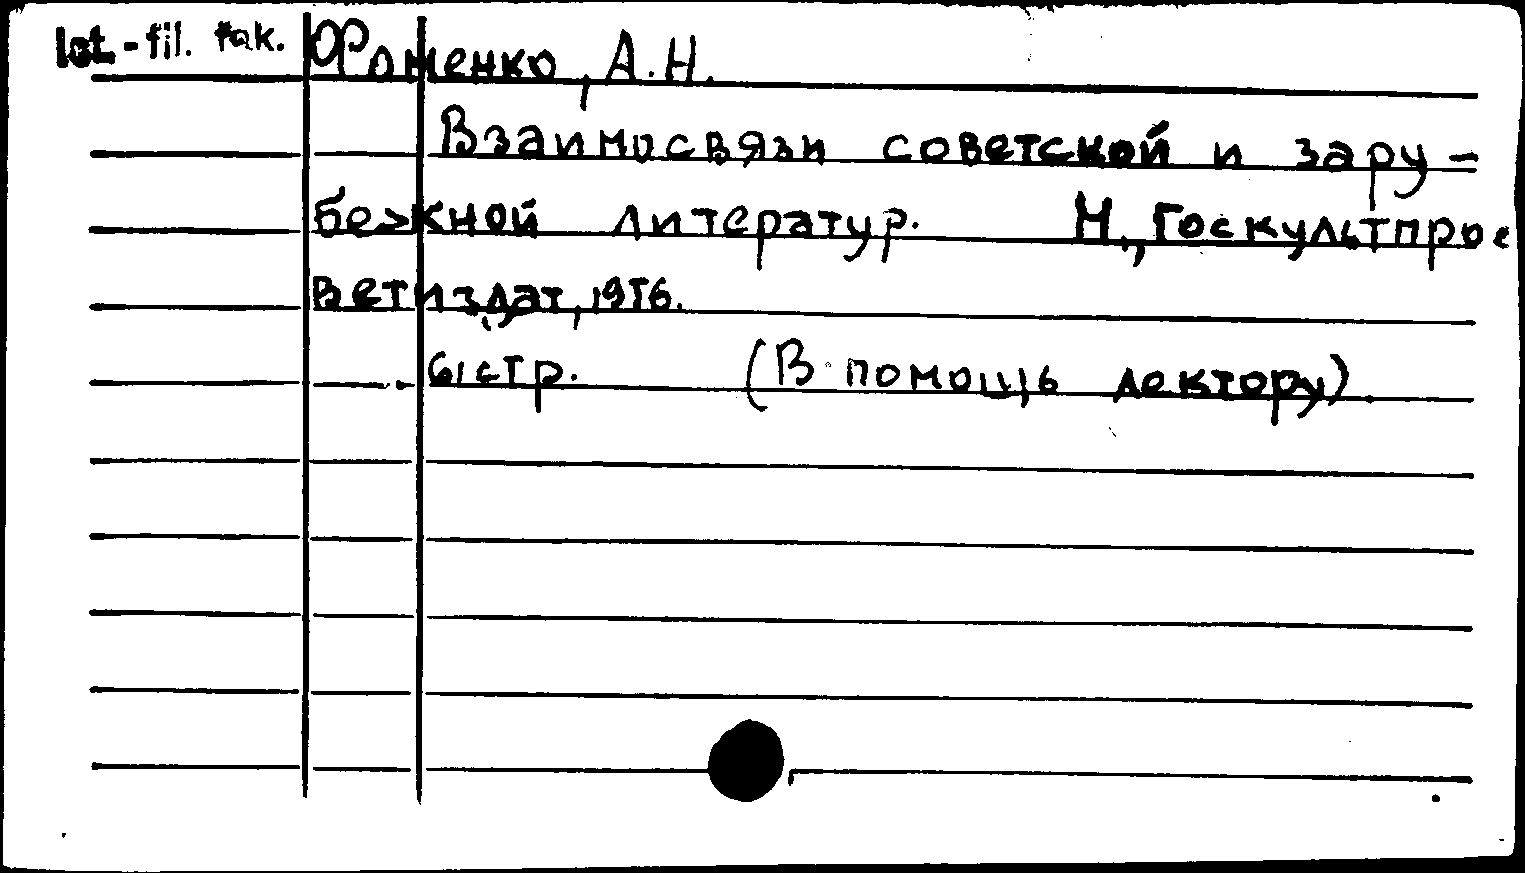 Ist.-fil. fak. Фоменко, А.Н.
Взаимосвязи советской и зару-
бежной литератур. М., Госкультпрос
ветиздат, 1956.
61стр. (В помощь лектору).